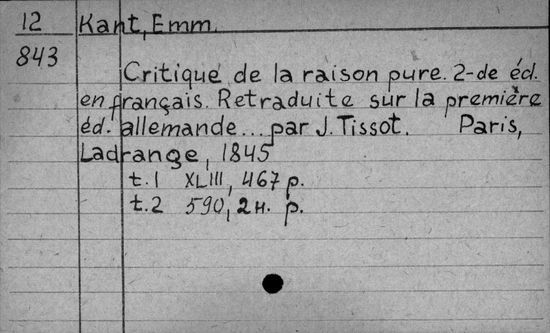 12
843
Kant, Emm.
Critique de la raison pure. 2-de éd.
en français. Retraduite sur la première
éd. allemande... par J. Tissot. Paris,
Ladrange, 1845
t.1 XLIII, 467 p.
t.2 590, 2н. p.